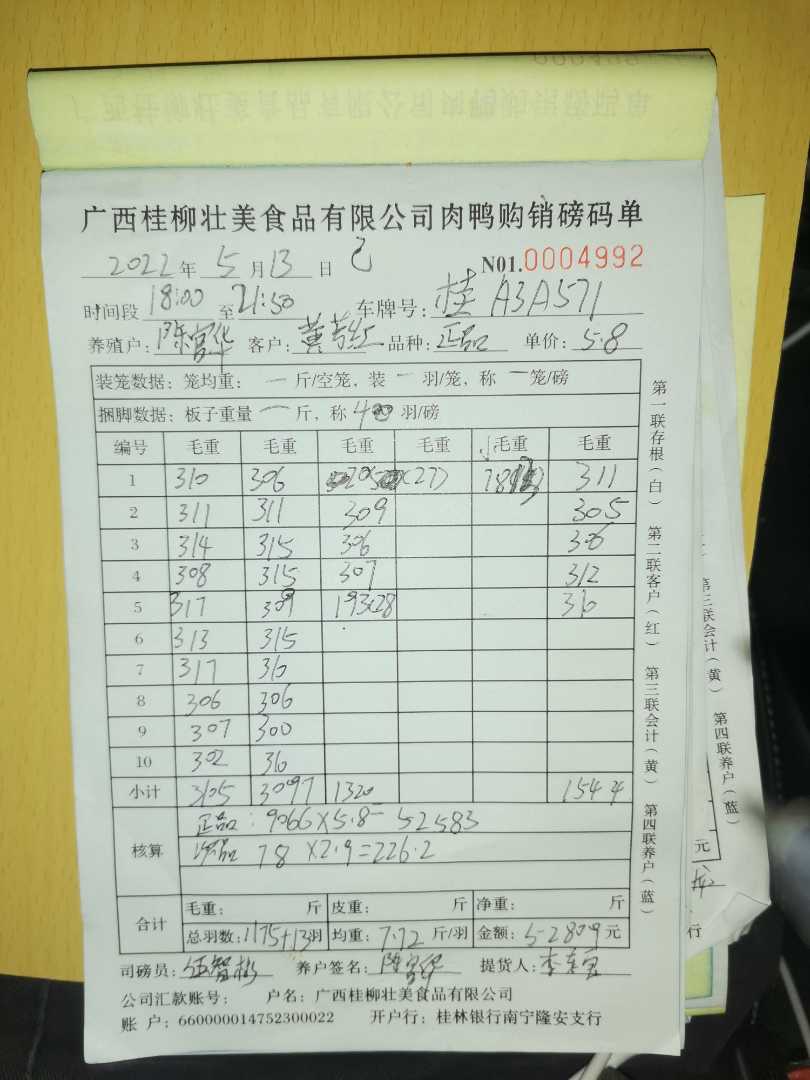 广西桂柳壮美食品有限公司肉鸭购销磅码单
2022年 5月13日 已 N01.0004992
时间段 18:00 至 21:50 车牌号: 桂 A3A571
养殖户: 陈富华 客户: 黄 红 品种: 正品 单价: 5.8
装笼数据: 笼均重: 一 斤/空笼, 装 一 羽/笼, 称 一 笼/磅
捆脚数据: 板子重量 一 斤, 称 40 羽/磅
编号 毛重 毛重 毛重 毛重 毛重 毛重
1 310 306 (27) 78 311
2 311 311 309 305
3 314 315 306 306
4 308 315 307 312
5 317 309 193(28 310
6 313 315
7 317 310
8 306 306
9 307 300
10 302 310
小计 3105 3097 1320 1544
核算
正品: 9066×5.8= 52583
78 ×2.9=226.2
合计
毛重: 斤 皮重: 斤 净重: 斤
总羽数: 1175+13羽 均重: 7.72 斤/羽 金额: 52809元
司磅员: 伍智彬 养户签名: 陈富华 提货人: 李
公司汇款账号: 户名: 广西桂柳壮美食品有限公司
账 户: 660000014752300022 开户行: 桂林银行南宁隆安支行
第一联存根(白) 第二联客户(红) 第三联会计(黄) 第四联养户(蓝)
第三联会计(黄) 第四联养户(蓝)
元
行